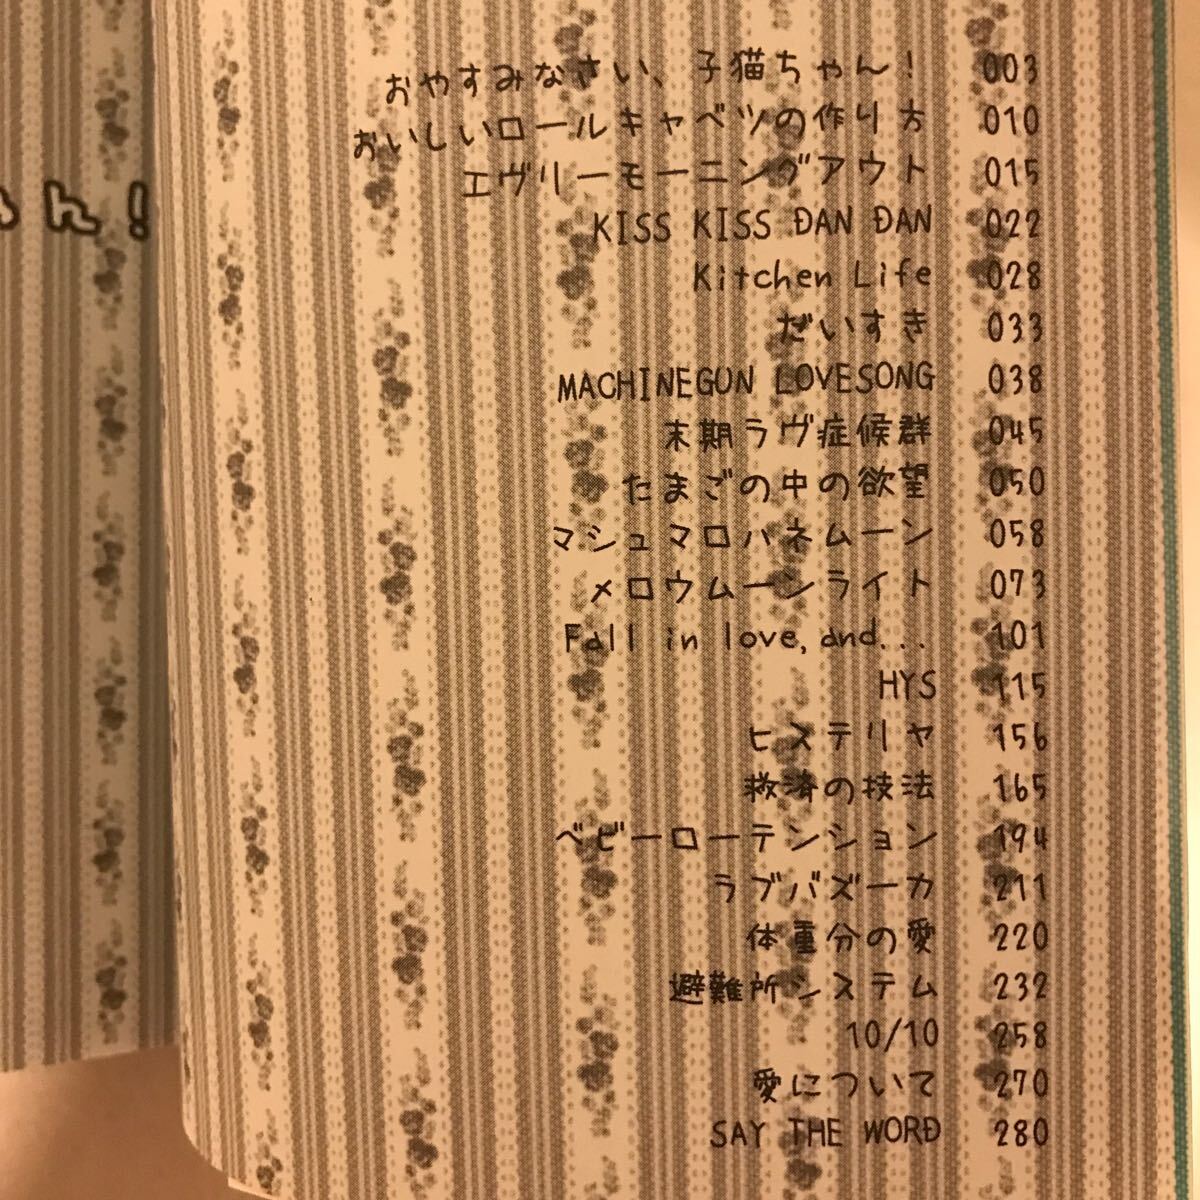 ん!
おやすみなさい、子猫ちゃん! 003
おいしいロールキャベツの作り方 010
エヴリーモーニングアウト 015
KISS KISS ĐAN ĐAN 022
Kitchen Life 028
だいすき 033
MACHINEGUN LOVESONG 038
末期ラヴ症候群 045
たまごの中の欲望 050
マシュマロバネムーン 058
メロウムーンライト 073
Fall in love, and... 101
HYS 115
ヒステリヤ 156
救済の技法 165
ベビーローテンション 194
ラブバズーカ 211
体重分の愛 220
避難所システム 232
10/10 258
愛について 270
SAY THE WORĐ 280